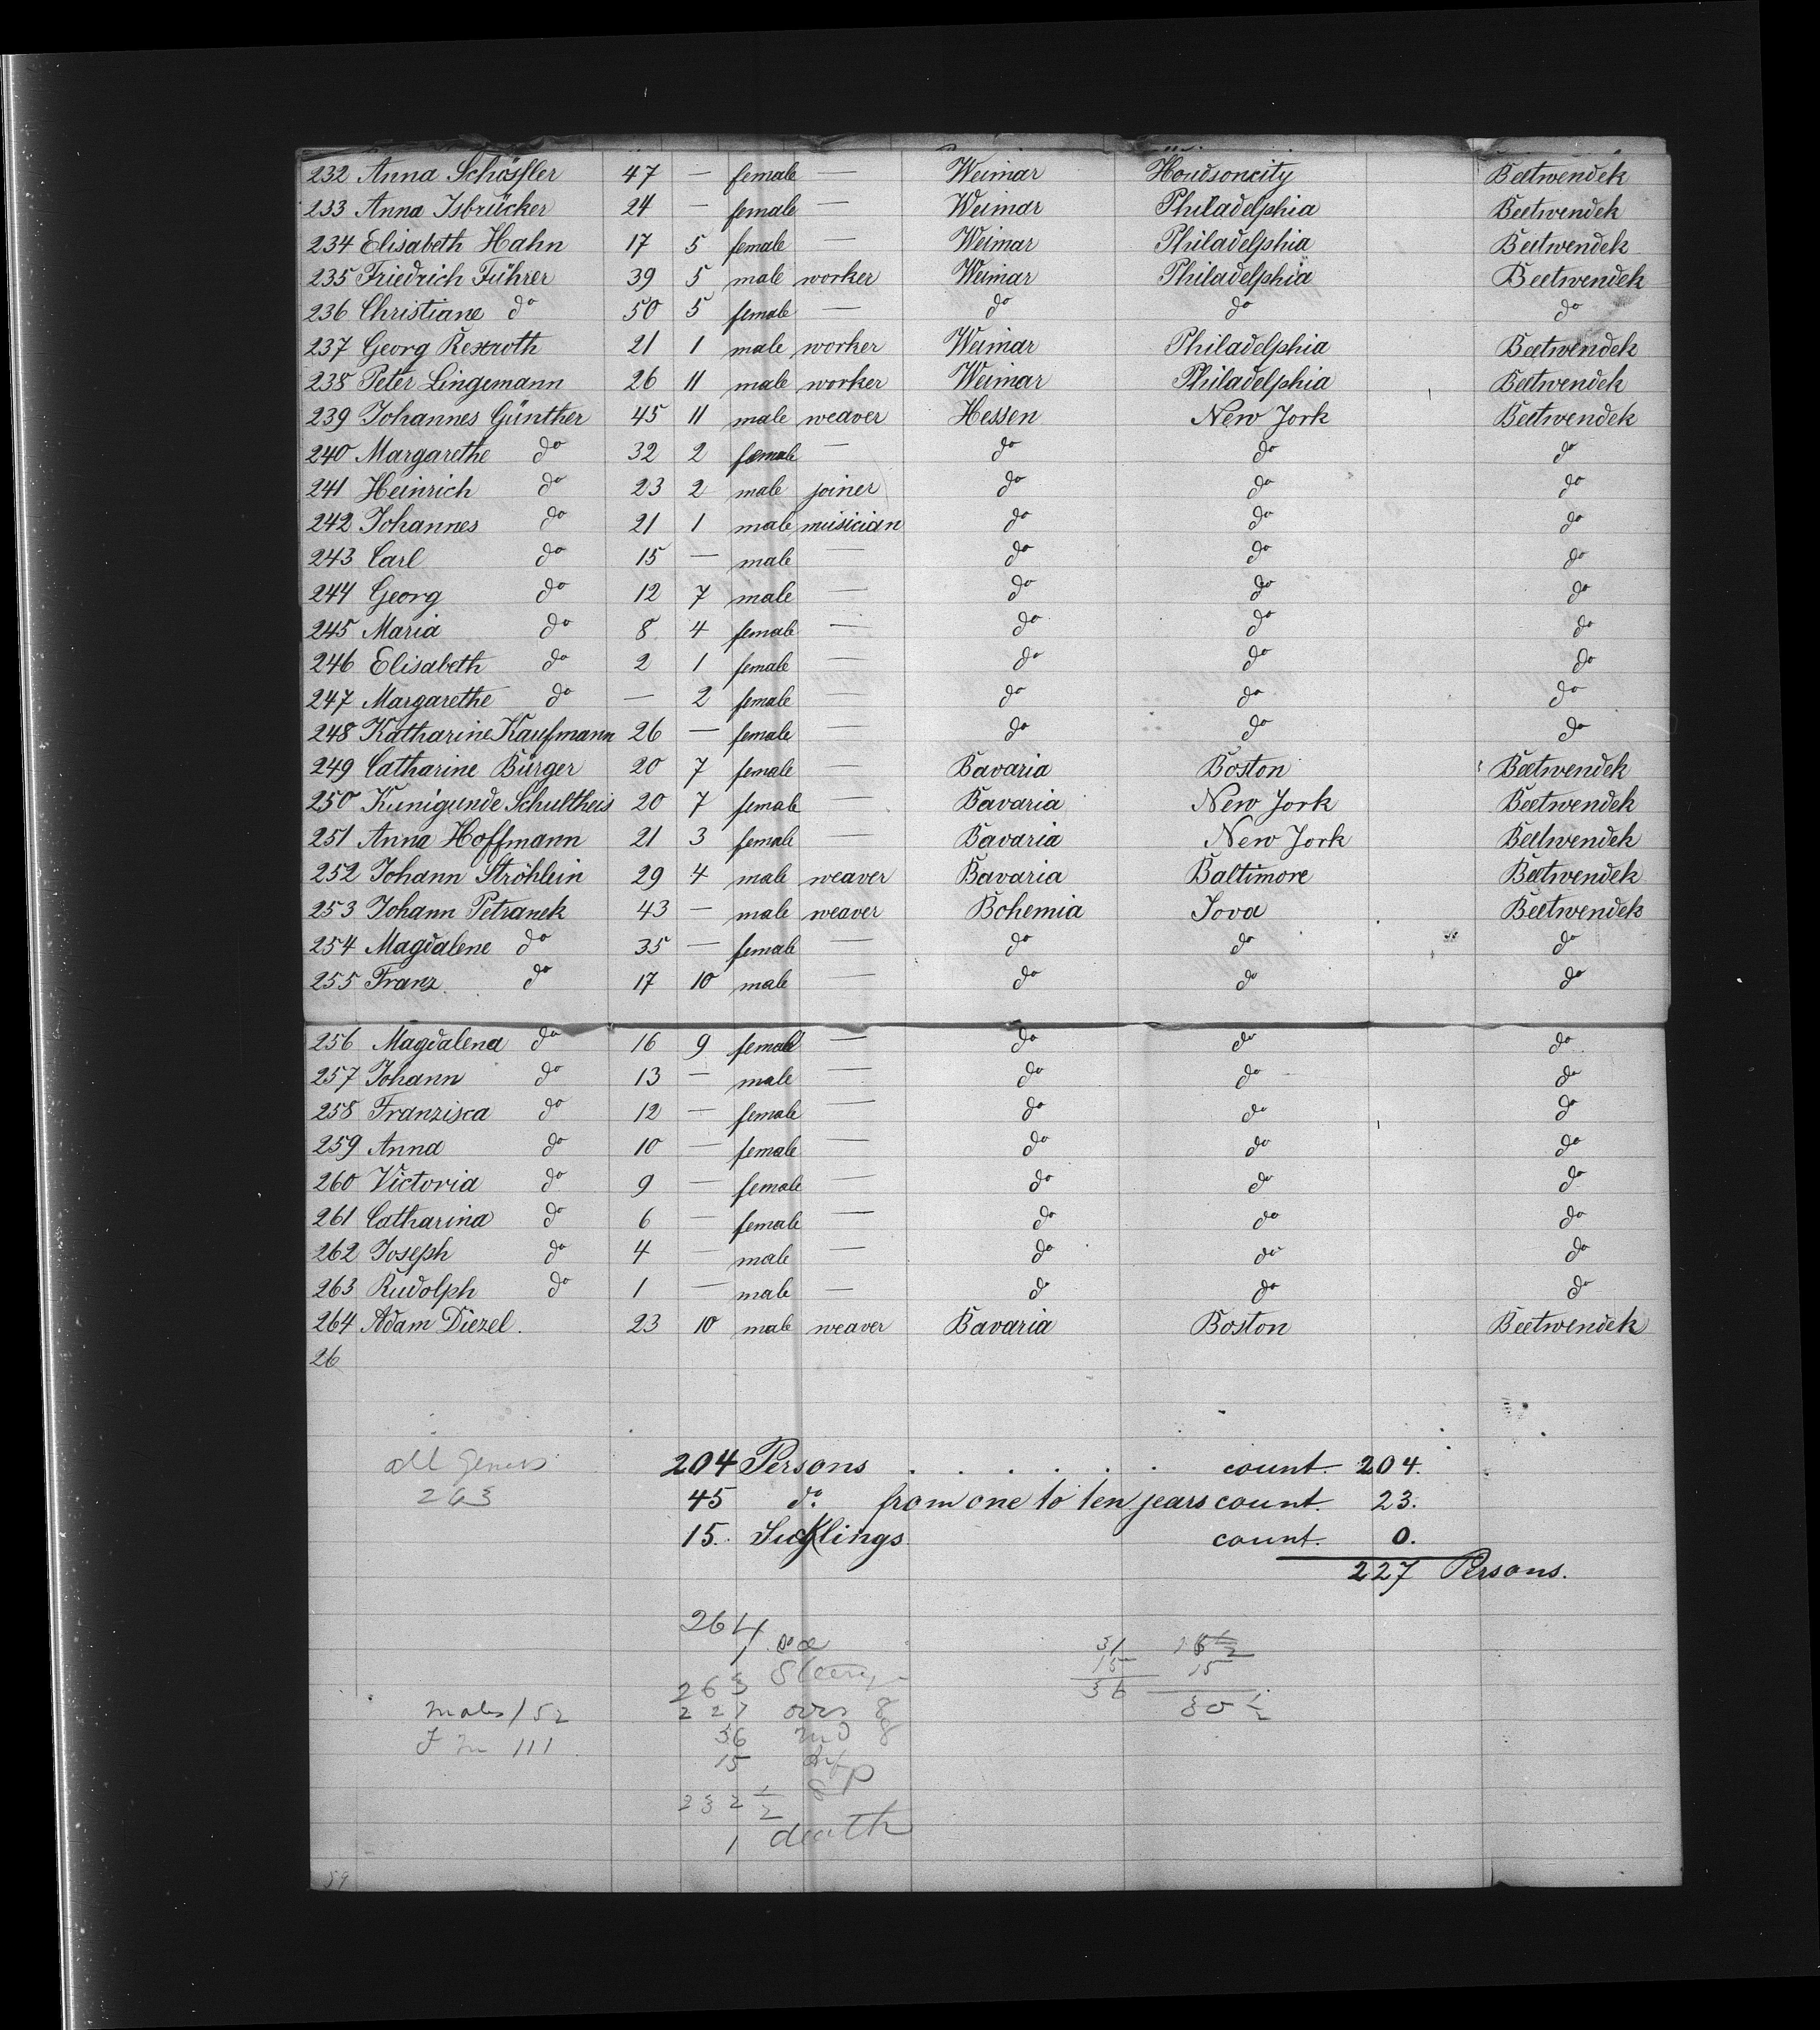 232 Anna Schössler 47 — female — Weimar Houdsoncity Beetwendek
233 Anna Isbrücker 24 — female — Weimar Philadelphia Beetwendek
234 Elisabeth Hahn 17 5 female — Weimar Philadelphia Beetwendek
235 Friedrich Führer 39 5 male worker Weimar Philadelphia Beetwendek
236 Christiane do 50 5 female — do do do
237 Georg Rexroth 21 1 male worker Weimar Philadelphia Beetwendek
238 Peter Lingemann 26 11 male worker Weimar Philadelphia Beetwendek
239 Johannes Günther 45 11 male weaver Hessen New York Beetwendek
240 Margarethe do 32 2 female — do do do
241 Heinrich do 23 2 male joiner do do do
242 Johannes do 21 1 male musician do do do
243 Carl do 15 — male — do do do
244 Georg do 12 7 male — do do do
245 Maria do 8 4 female — do do do
246 Elisabeth do 2 1 female — do do do
247 Margarethe do — 2 female — do do do
248 Katharine Kaufmann 26 — female — do do do
249 Catharine Bürger 20 7 female — Bavaria Boston Beetwendek
250 Kunigunde Schultheis 20 7 female — Bavaria New York Beetwendek
251 Anna Hoffmann 21 3 female — Bavaria New York Beetwendek
252 Johann Ströhlein 29 4 male weaver Bavaria Baltimore Beetwendek
253 Johann Petranek 43 — male weaver Bohemia Iova Beetwendek
254 Magdalene do 35 — female — do do do
255 Franz do 17 10 male — do do do
256 Magdalena do 16 9 female — do do do
257 Johann do 13 — male — do do do
258 Franzisca do 12 — female — do do do
259 Anna do 10 — female — do do do
260 Victoria do 9 — female — do do do
261 Catharina do 6 — female — do do do
262 Joseph do 4 — male — do do do
263 Rudolph do 1 — male — do do do
264 Adam Diezel. 23 10 male weaver Bavaria Boston Beetwendek
26
204 Persons . . . . . . count. 204.
263
45 do. from one to ten years count. 23.
15. Sucklings count. 0.
227 Persons.
264
1
31
15 15
263
36 30 1/2
males 152 227 over 8
36 und 8
F m 111
15
232 1/2
1 death